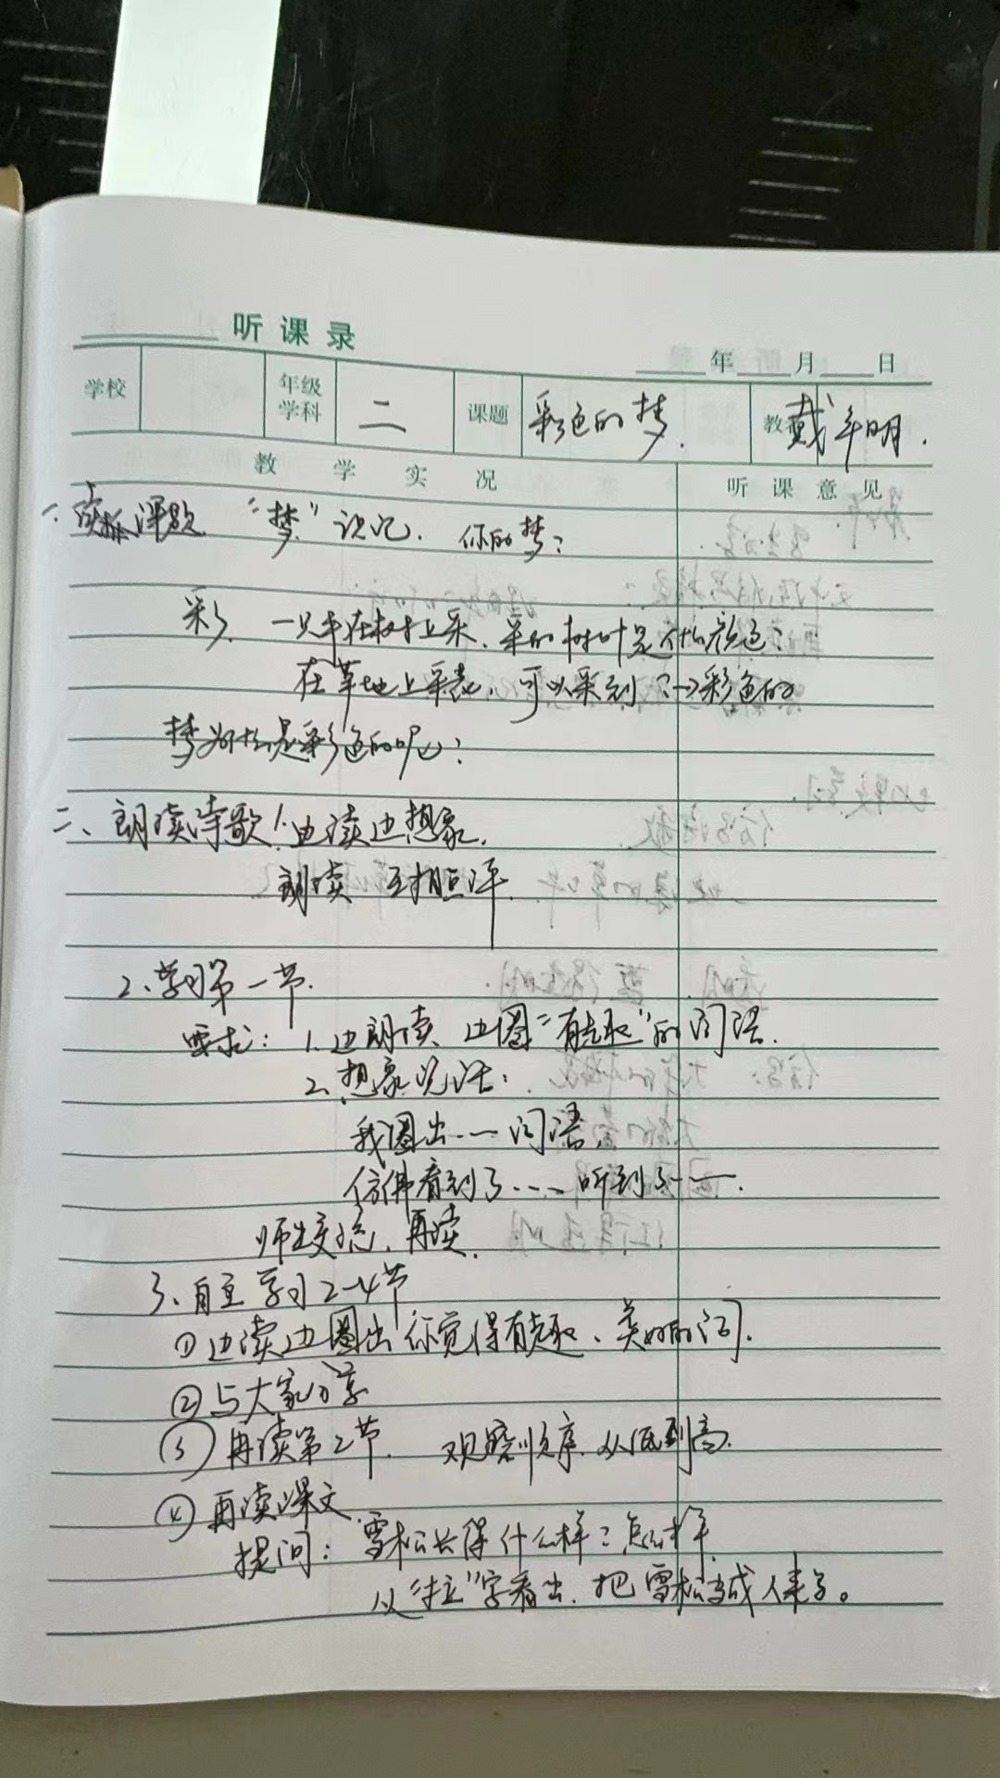 听课录
年 月 日
学校 年级学科 二 课题 彩色的梦. 教 戴年明.
教学实况 听课意见
一. 课题 “梦”识记. 你的梦?
彩 一只手在树上采, 采的树叶是什么颜色?
在草地上采花, 可以采到?→彩色的
梦为什么是彩色的呢?
二、朗读诗歌 1. 边读边想象.
朗读 互相点评.
2、学习第一节.
要求: 1. 边朗读 边圈“有趣”的词语.
2. 想象说话:
我圈出..一词语.
仿佛看到了....听到了——.
师生交流, 再读.
3、自主学习2-4节
①边读边圈出你觉得有趣、美好的词.
②与大家分享
③再读第2节. 观察顺序. 从低到高.
④再读课文.
提问: 雪松长得什么样? 怎么样
从“拉”字看出. 把雪松当成人来写。